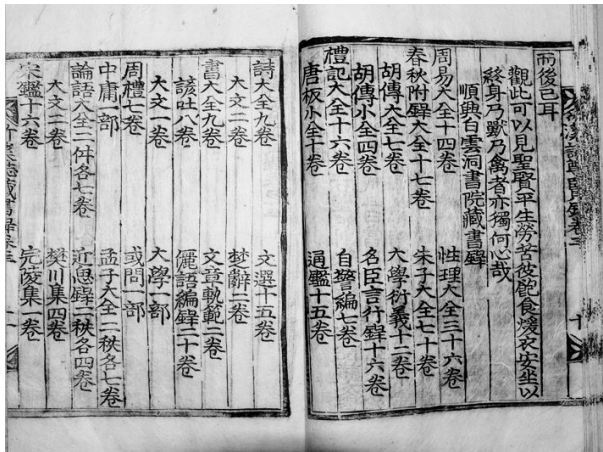 而後已耳
觀此可以見聖賢平生勞苦彼飽食煖衣安坐以
終身乃獸乃禽者亦獨何心哉
順興白雲洞書院藏書錄
周易大全十四卷 性理大全三十六卷
春秋附錄大全十七卷 朱子大全七十卷
胡傳大全七卷 大學衍義十二卷
胡傳小全四卷 名臣言行錄十六卷
禮記大全十六卷 自警編七卷
唐板小全十卷 通鑑十五卷
詩大全九卷 文選十五卷
大文二卷 楚辭二卷
書大全九卷 文章軌範二卷
諺吐八卷 儷語編錄二十卷
大文一卷 大學一部
周禮七卷 或問一部
中庸一部 孟子大全二秩各七卷
論語大全二件各七卷 近思錄二秩各四卷
大文二卷 樊川集四卷
宋鑑十六卷 宛陵集一卷